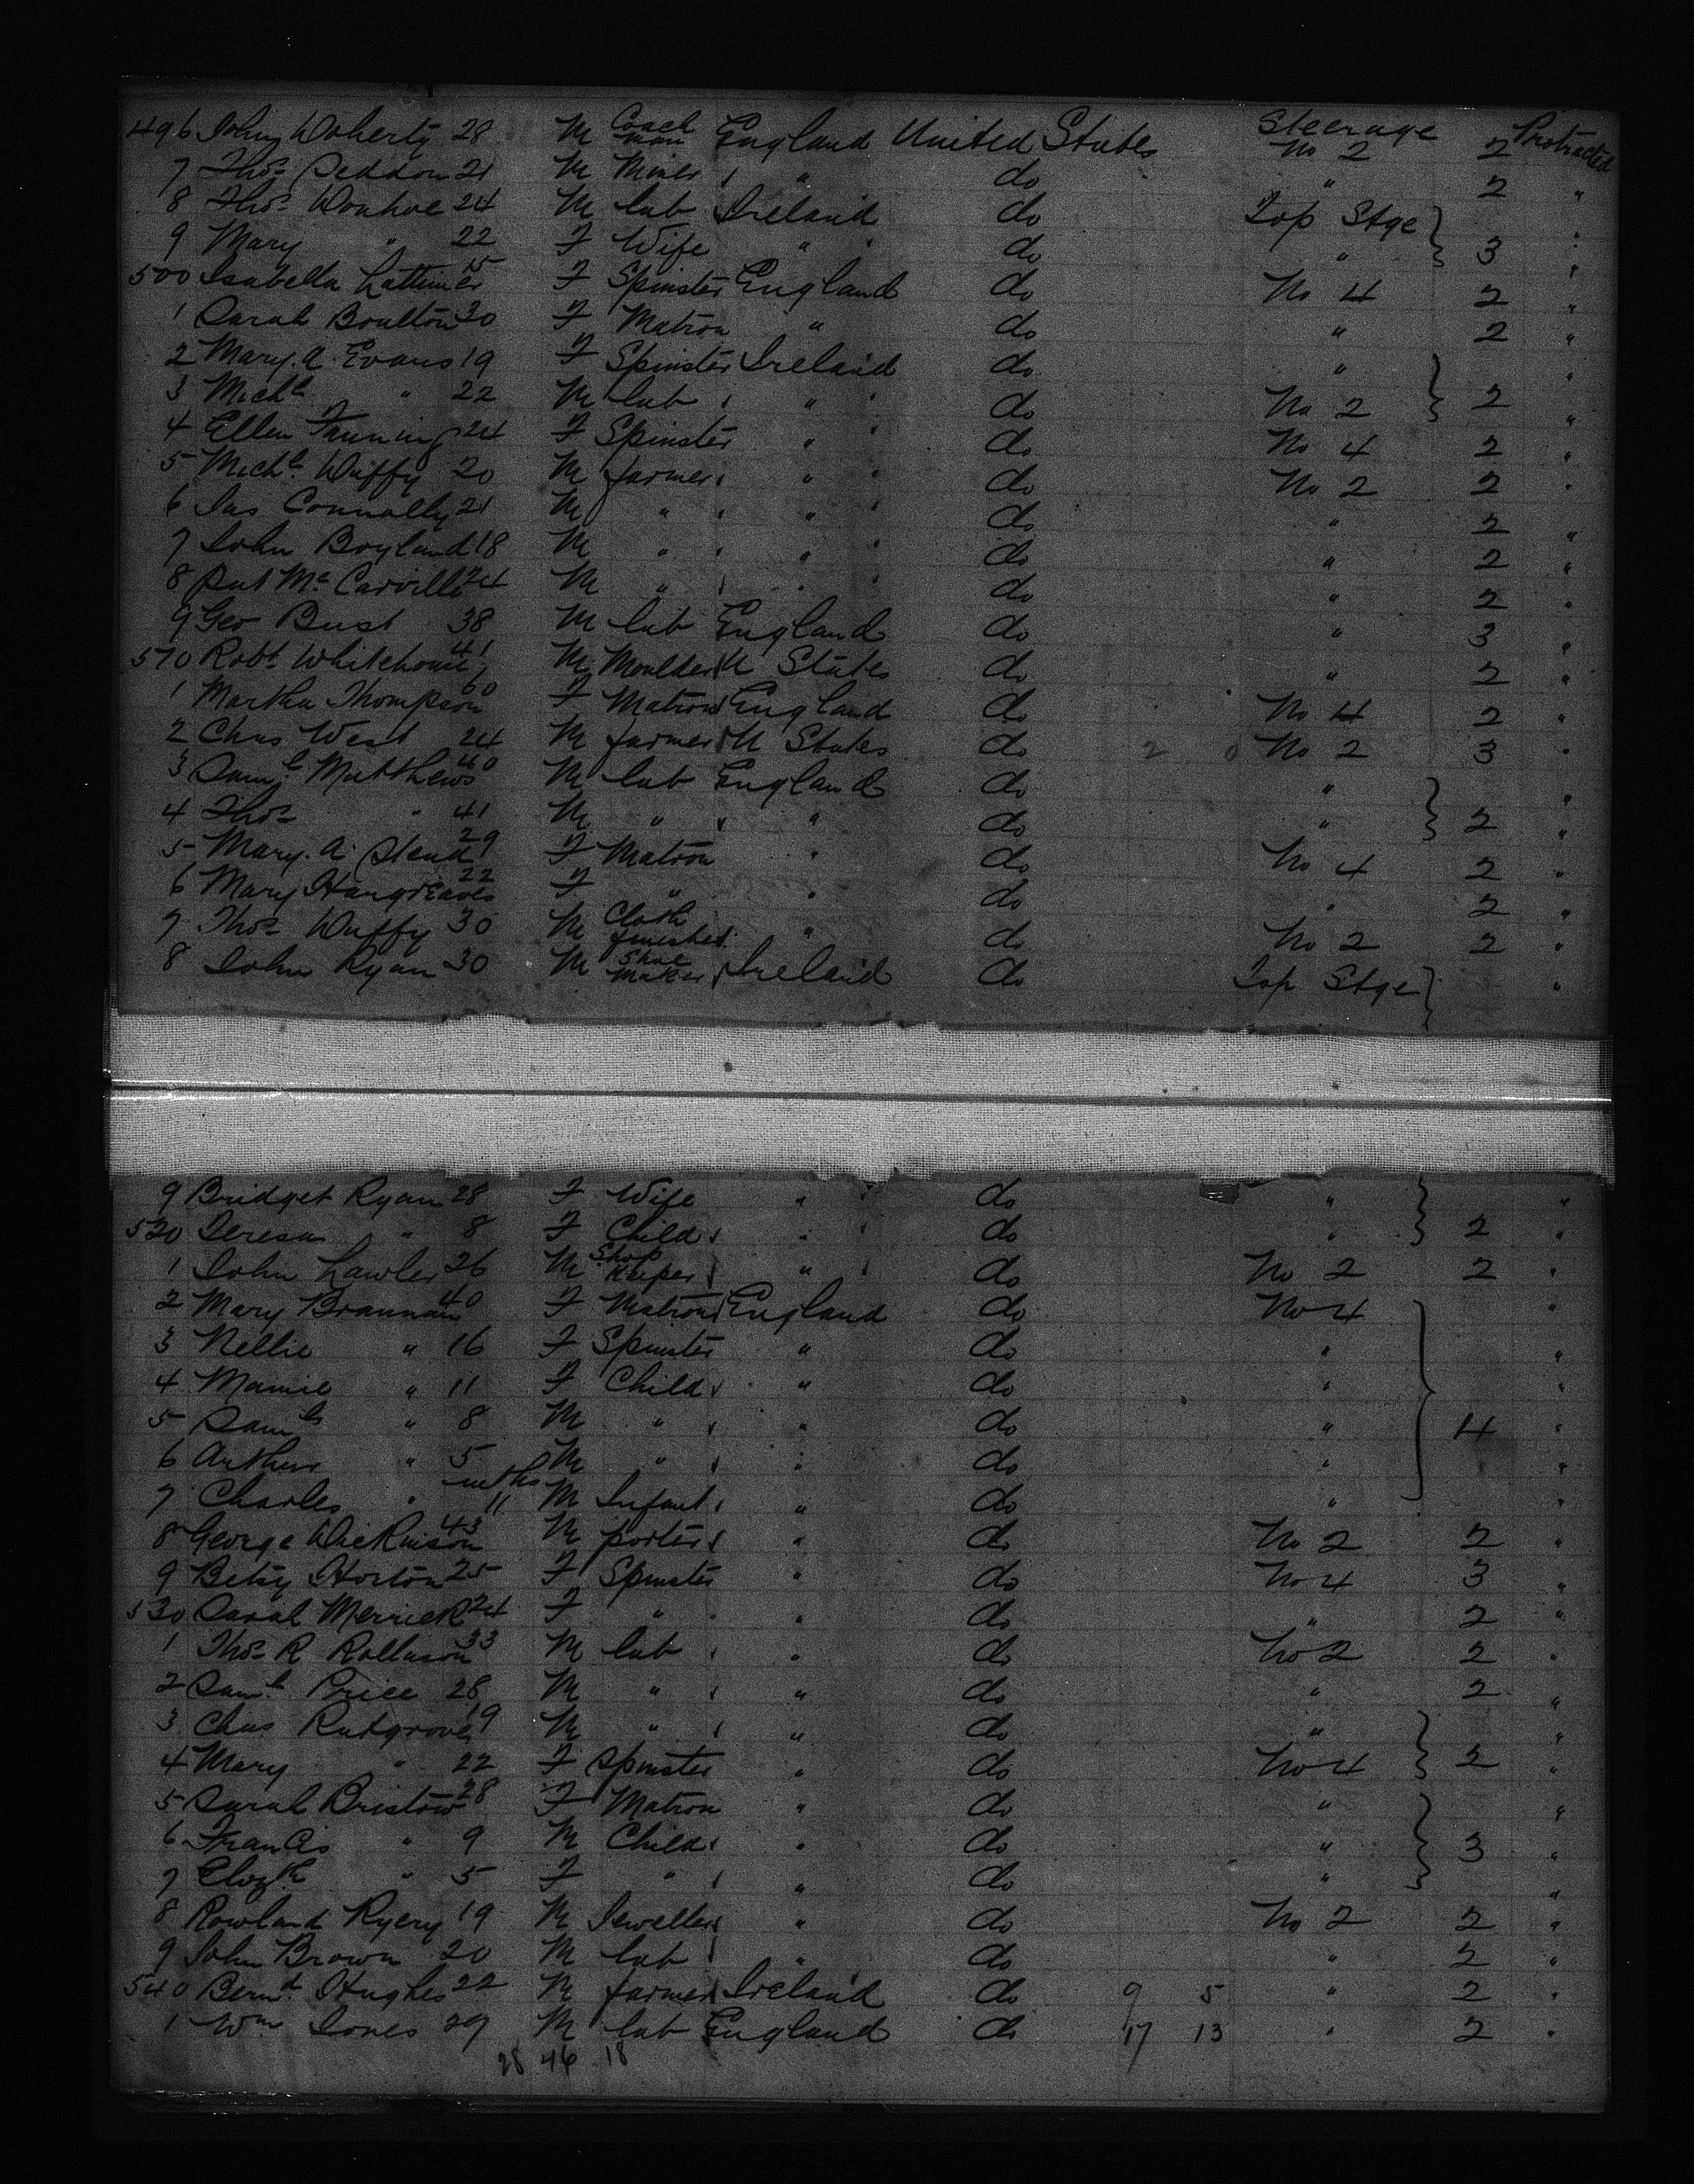 496 John Doherty 28 M Coachman England United States Steerage No 2 2 Protracted
7 Thos Seddon 21 M Miner " do " 2 "
8 Thos Donhoe 24 M lab Ireland do Top Stge "
9 Mary " 22 F Wife " do " 3 "
500 Isabella Lattimer 25 F Spinster England do No 4 2 "
1 Sarah Boulton 30 F Matron " do " 2 "
2 Mary. A. Evans 19 F Spinster Ireland do " "
3 Michl " 22 M lab " do No 2 2 "
4 Ellen Fanning 24 F Spinster " do No 4 2 "
5 Michl Duffy 20 M farmer " do No 2 2 "
6 Jas Connolly 21 M " " do " 2 "
7 John Boyland 18 M " " do " 2 "
8 Pat McCarville 24 M " " do " 2 "
9 Geo Bust 38 M lab England do " 3 "
510 Robt Whitehouse 41 M Moulder U States do " 2 "
1 Martha Thompson 60 F Matron England do No 4 2 "
2 Chas West 24 M farmer U States do 2 0 No 2 3 "
3 Saml Matthews 40 M lab England do " "
4 Thos " 41 M " " do " 2 "
5 Mary. A. 29 F Matron " do No 4 2 "
6 Mary Hargreaves 22 F " " do " 2 "
7 Thos Duffy 30 M Cloth finisher " do No 2 2 "
8 John Ryan 30 M Shoe Maker Ireland do Top Stge "
9 Bridget Ryan 28 F Wife " do " "
520 Teresa " 8 F Child " do " 2 "
1 John Lawler 26 M Shop Keeper " do No 2 2 "
2 Mary Brannan 40 F Matron England do No 4 "
3 Nellie " 16 F Spinster " do " "
4 Mamie " 11 F Child " do " "
5 Saml " 8 M " " do " 4 "
6 Arthur " 5 M " " do " "
7 Charles " mths 11 M Infant " do " "
8 George Dickinson 43 M porter " do No 2 2 "
9 Betsy Horton 25 F Spinster " do No 4 3 "
530 Sarah Merrick 24 F " " do " 2 "
1 Thos R Rollason 33 M lab " do No 2 2 "
2 Saml Price 28 M " " do " 2 "
3 Chas Rutgrove 19 M " " do " "
4 Mary " 22 F Spinster " do No 4 2 "
5 Sarah Bristow 28 F Matron " do " "
6 Francis " 9 M Child " do " 3 "
7 Elizth " 5 F " " do " "
8 Rowland Ryery 19 M Jeweller " do No 2 2 "
9 John Brown 20 M lab " do " 2 "
540 Bernd Hughes 22 M farmer Ireland do 9 5 " 2 "
1 Wm Jones 29 M lab England do 17 13 " 2 "
28 46 18